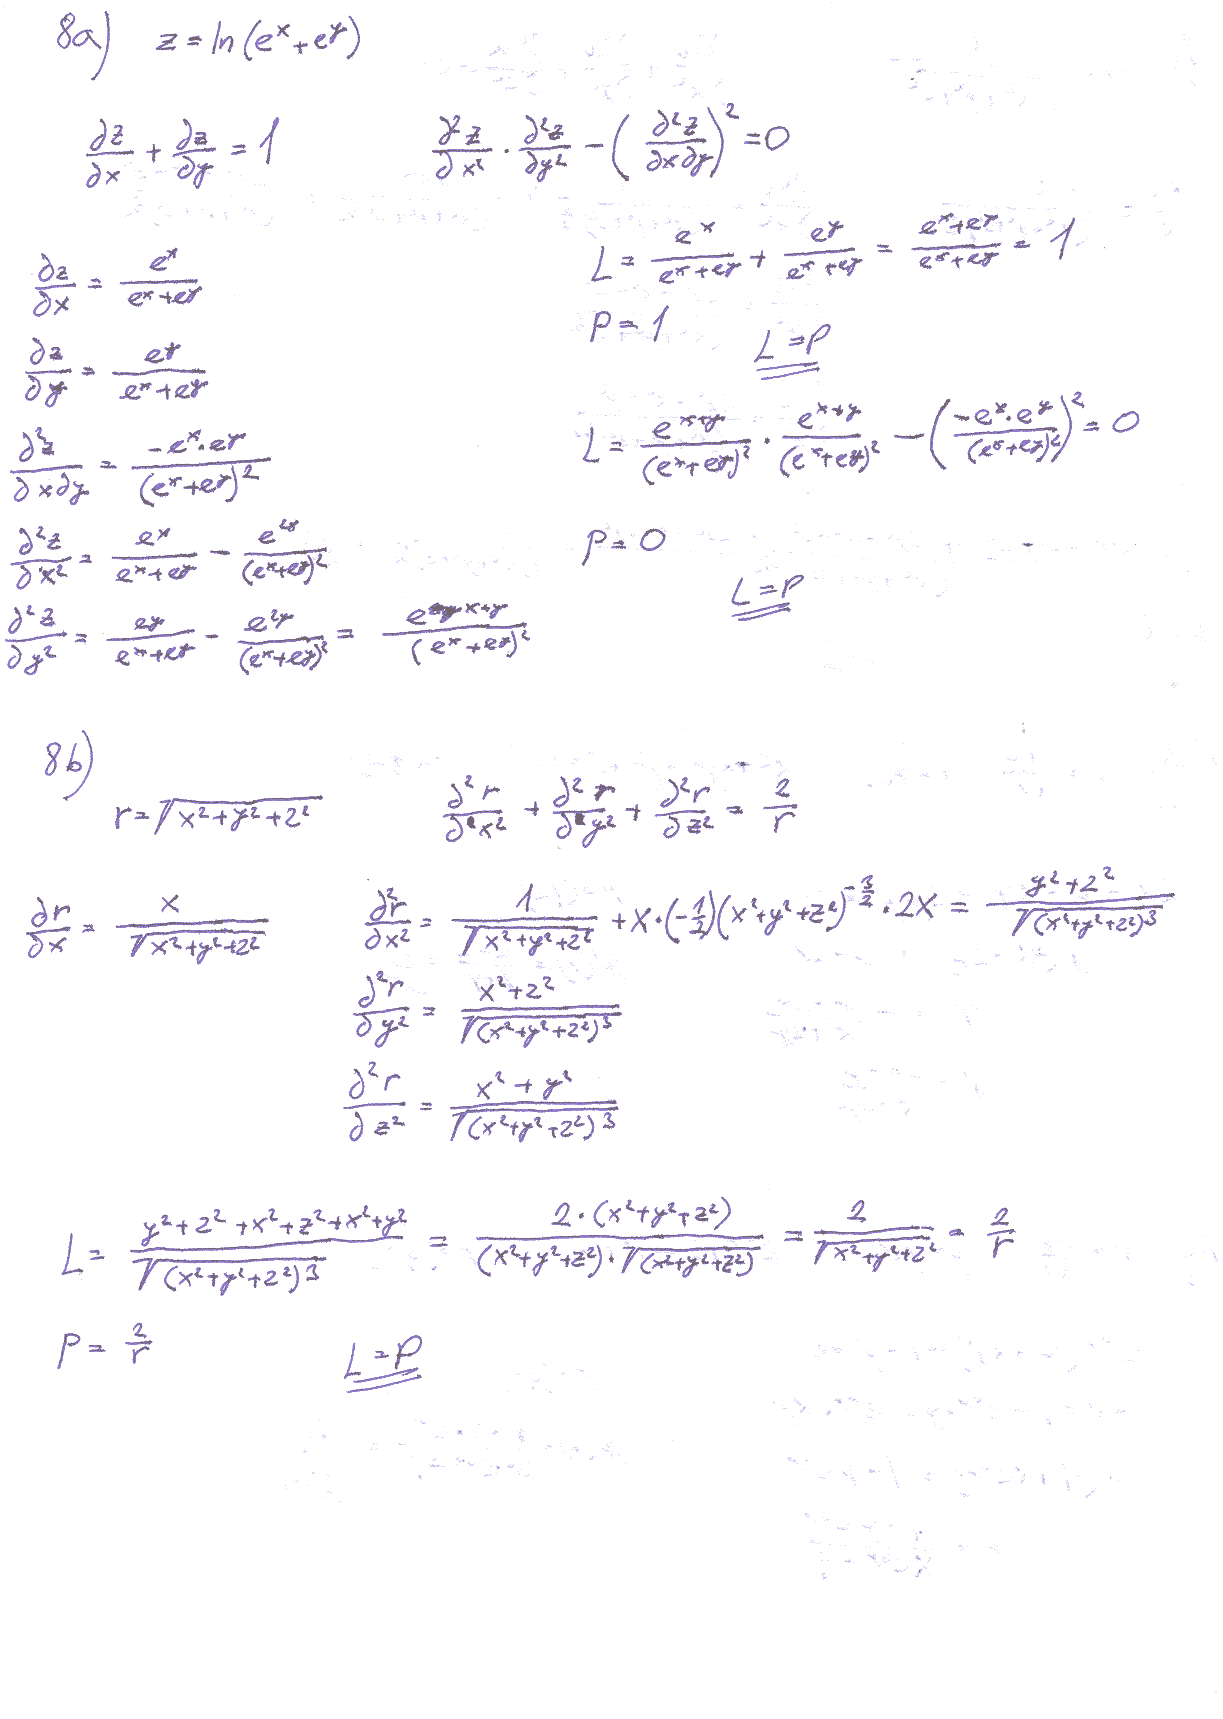 8a) z = ln(e^x + e^y)
∂z/∂x + ∂z/∂y = 1    ∂²z/∂x² · ∂²z/∂y² − (∂²z/∂x∂y)² = 0
∂z/∂x = e^x/(e^x + e^y)
L = e^x/(e^x + e^y) + e^y/(e^x + e^y) = (e^x + e^y)/(e^x + e^y) = 1
P = 1
L = P
∂z/∂y = e^y/(e^x + e^y)
∂²z/∂x∂y = −e^x · e^y/(e^x + e^y)²
L = e^(x+y)/(e^x + e^y)² · e^(x+y)/(e^x + e^y)² − (−e^x · e^y/(e^x + e^y)²)² = 0
∂²z/∂x² = e^x/(e^x + e^y) − e^(2x)/(e^x + e^y)²
P = 0
L = P
∂²z/∂y² = e^y/(e^x + e^y) − e^(2y)/(e^x + e^y)² = e^(x+y)/(e^x + e^y)²
8b)
r = √(x² + y² + z²)    ∂²r/∂x² + ∂²r/∂y² + ∂²r/∂z² = 2/r
∂r/∂x = x/√(x² + y² + z²)    ∂²r/∂x² = 1/√(x² + y² + z²) + x · (−1/2)(x² + y² + z²)^(−3/2) · 2x = (y² + z²)/√(x² + y² + z²)³
∂²r/∂y² = (x² + z²)/√(x² + y² + z²)³
∂²r/∂z² = (x² + y²)/√(x² + y² + z²)³
L = (y² + z² + x² + z² + x² + y²)/√(x² + y² + z²)³ = 2 · (x² + y² + z²)/((x² + y² + z²) · √(x² + y² + z²)) = 2/√(x² + y² + z²) = 2/r
P = 2/r    L = P